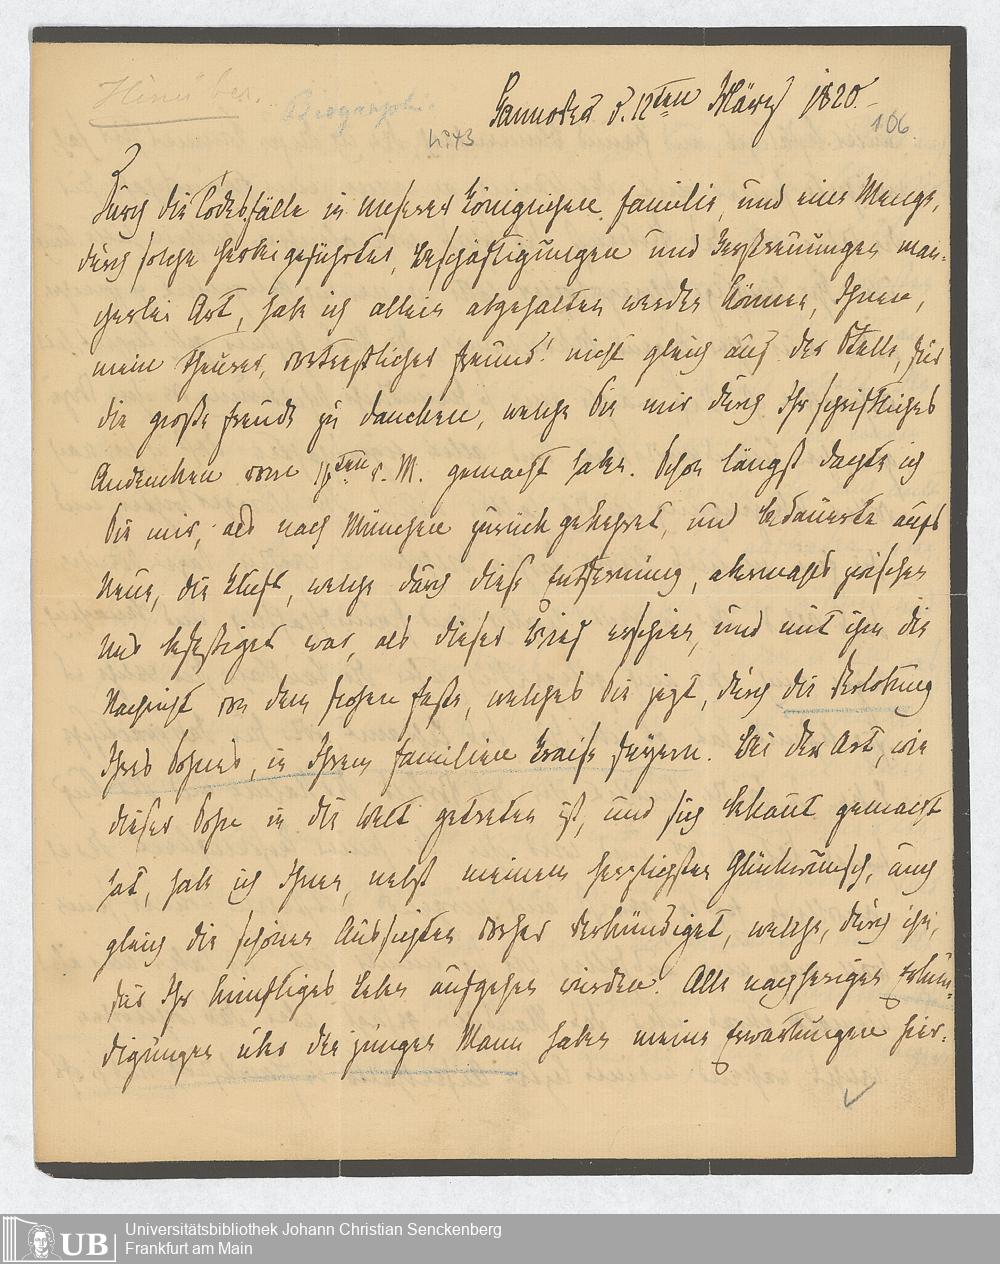 Hinüber.
Biographie
Hannover d. 12ten März 1820.
106.
No 43
Durch die Todesfälle in unserer Königlichen Familie, und eine Menge,
durch solche herbeigeführter, Beschäftigungen und Zerstreuungen man-
cherlei Art, habe ich allein abgehalten werden können, Ihnen,
mein theurer, vortrefflicher Freund! nicht gleich auf der Stelle, für
die große Freude zu dancken, welche Sie mir durch Ihr schriftliches
Andencken vom ten v. M. gemacht haben. Schon längst dachte ich
Sie mir, als nach München zurück gekehret, und bedauerte aufs
Neue, die Kluft, welche durch diese Entfernung, abermahls zwischen
uns befestiget war, als dieser Brief erschien, und mit ihm die
Nachricht von dem frohen Feste, welches Sie jezt, durch die Verlobung
Ihres Sohnes, in Ihrem Familien Kreise feyern. Bei der Art, wie
dieser Sohn in die Welt getreten ist, und sich bekant gemacht
hat, habe ich Ihnen, nebst meinem herzlichsten Glückwunsch, auch
gleich die schönen Aussichten vorher verkündiget, welche, durch ihn,
für Ihr künftiges Leben aufgehen würden. Alle nachherigen Erkun-
digungen über den jungen Mann haben meine Erwartungen hier-
UB
Universitätsbibliothek Johann Christian Senckenberg
Frankfurt am Main